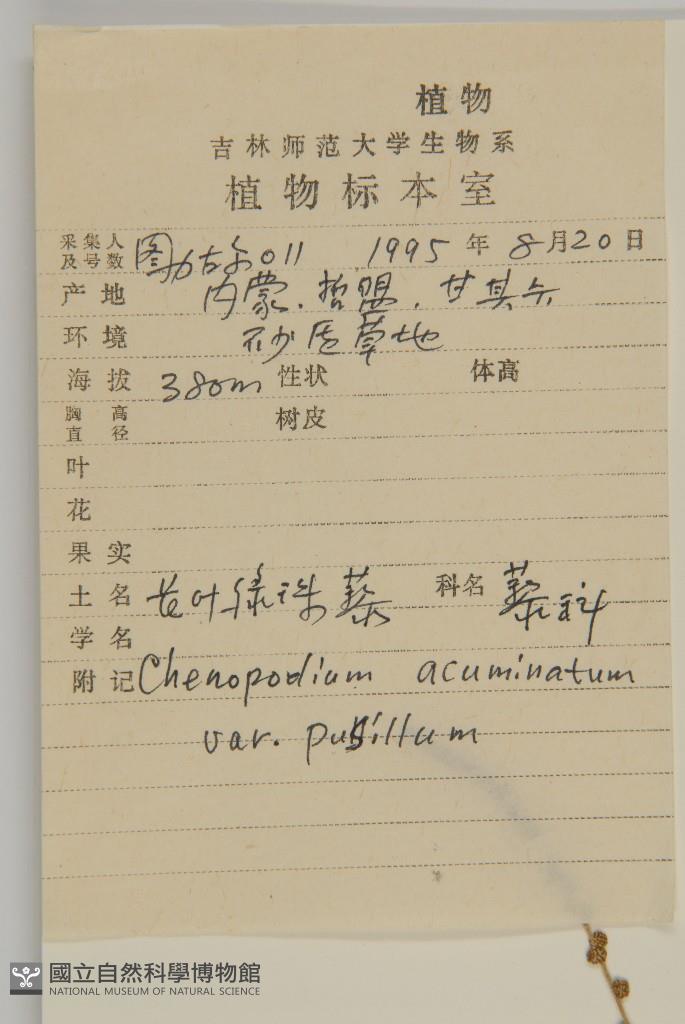 植物
吉林师范大学生物系
植物标本室
采集人及号数 图力古尔011 1995年8月20日
产地 内蒙.哲盟.甘其卡
环境 砂质草地
海拔 380m 性状 体高
胸高直径 树皮
叶
花
果实
土名 叶绿珠藜 科名 藜科
学名
附记 Chenopodium acuminatum
var. pusillum
國立自然科學博物館
NATIONAL MUSEUM OF NATURAL SCIENCE